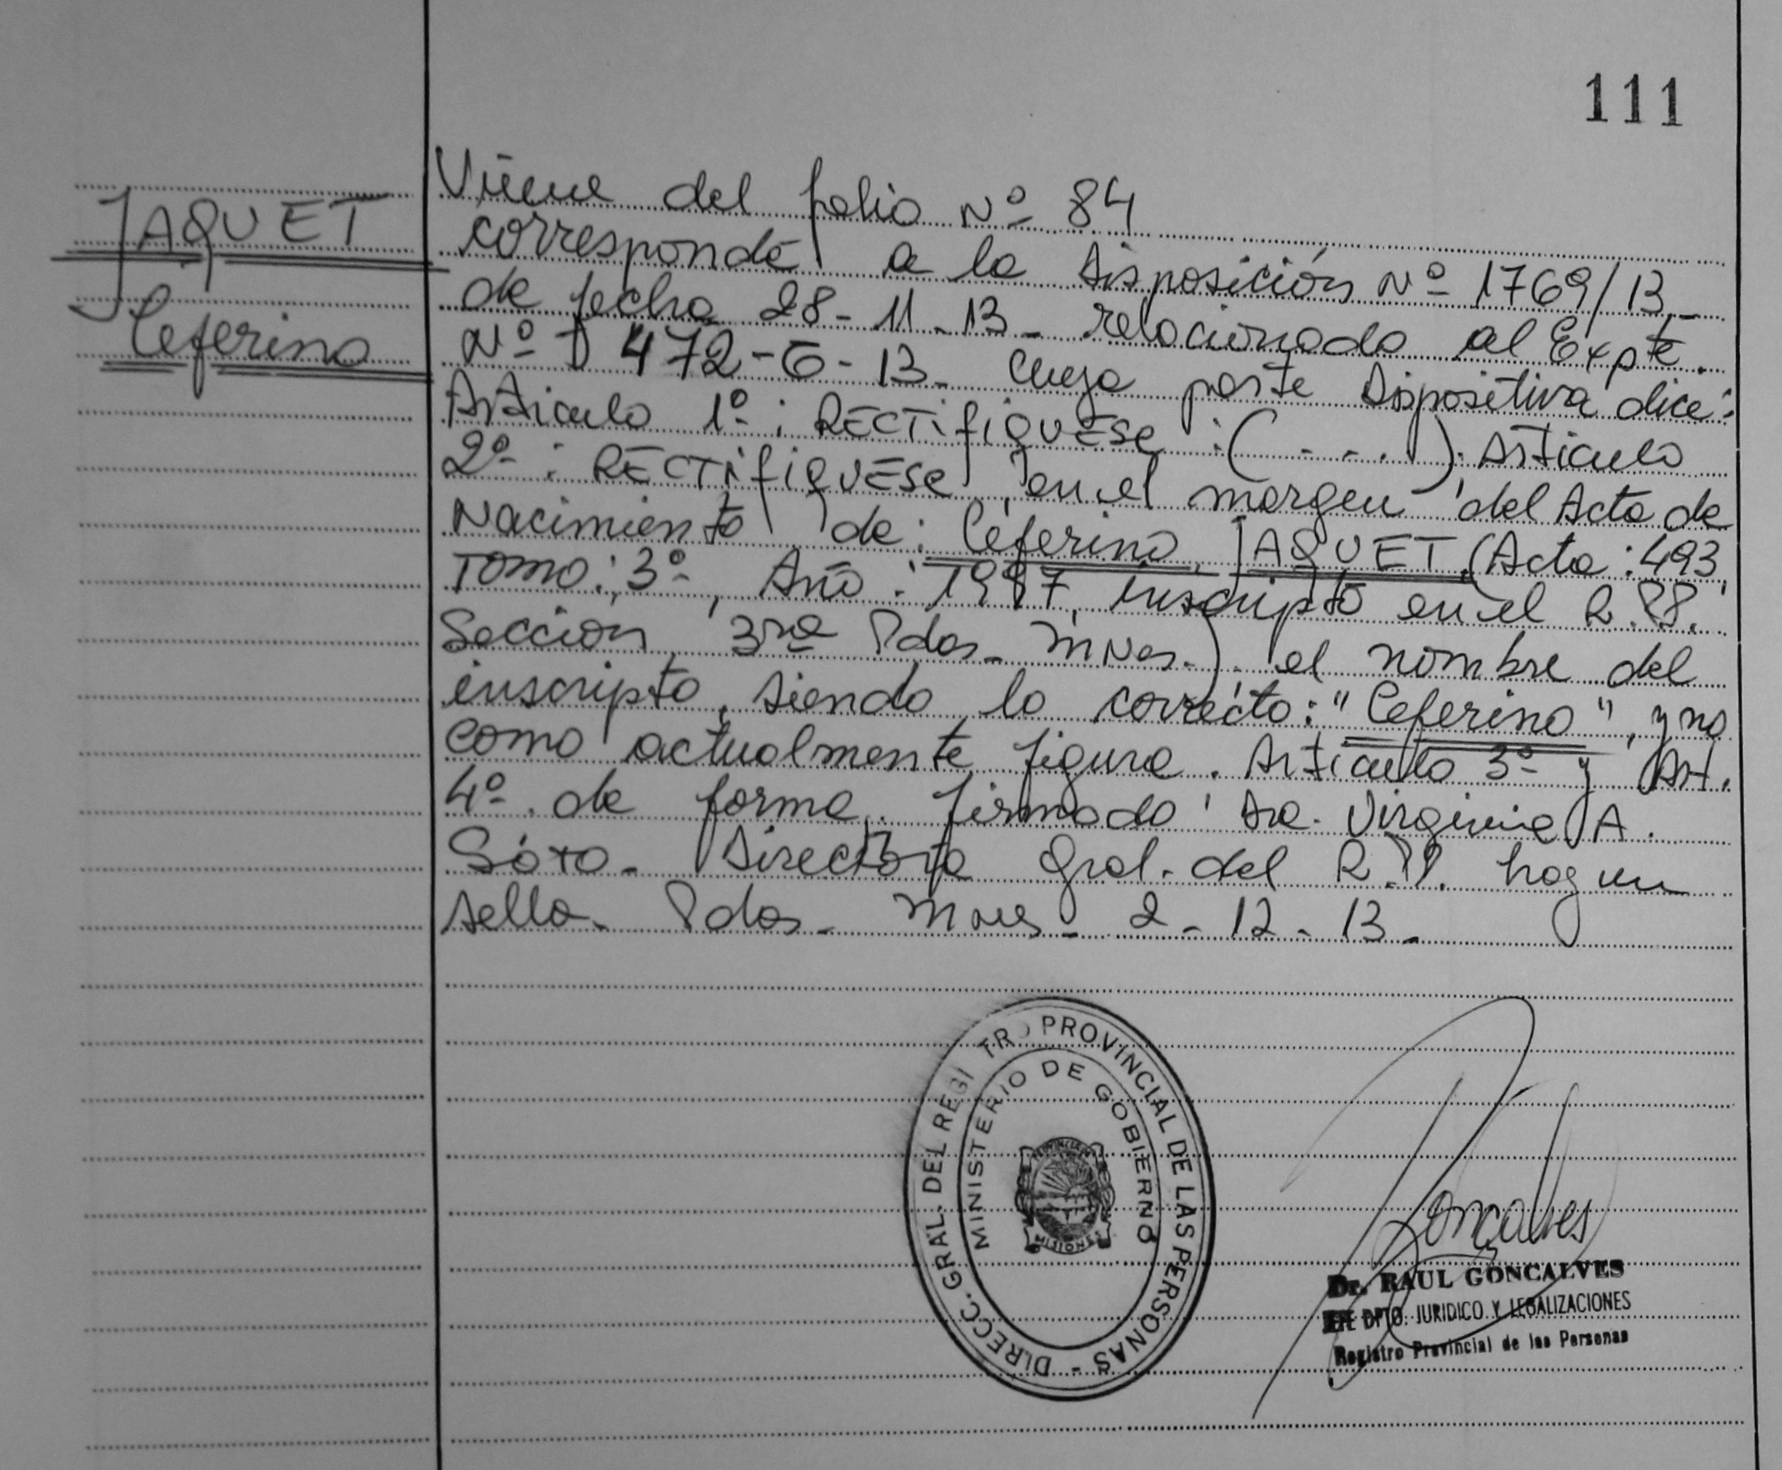 111
JAQUET
Ceferino
Viene del folio Nº 84
corresponde a la Disposición Nº 1769/13
de fecha 28-11-13- relacionado al Expte.
Nº 472-G-13- cuya parte Dispositiva dice:
Articulo 1º: RECTifiQUESE: (....). Articulo
2º: RECTifiQUESE, en el margen del Acta de
Nacimiento de: Ceferino JAQUET, (Acta: 493,
Tomo: 3º, Año: 1997, inscripto en el R.PP.
Sección 3ra Pdas- mnes.). el nombre del
inscripto, siendo lo correcto: "Ceferino", y no
como actualmente figura. Articulo 3º y Art.
4º. de forma. firmado Dra. Virginia A.
Soto- Directora Gral. del R.PP. hay un
sello- Pdas- Mnes- 2-12-13-
DIRECC. GRAL. DEL REGI TRO PROVINCIAL DE LAS PERSONAS -
MINISTERIO DE GOBIERNO
PROVINCIA
MISIONES
Gonçalves
Dr. RAUL GONCALVES
JEFE DPTO. JURIDICO Y LEGALIZACIONES
Registro Provincial de las Personas